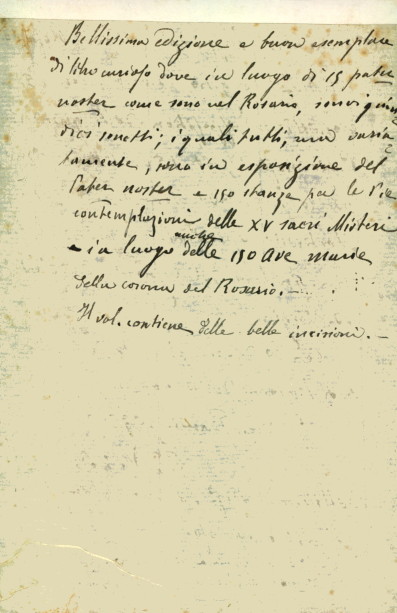 Bellissima edizione e buon esemplare
di libro curioso dove in luogo di 15 pater
noster come sono nel Rosario, sonvi quin
dici sonetti; i quali tutti, ma varia
tamente, sono in esposizione del
Pater noster e 150 stanze per le Pie
contemplazioni delle XV sacri Misteri
e in luogo anche delle 150 Ave marie
della corona del Rosario. -
Il vol. contiene delle belle incisioni. -